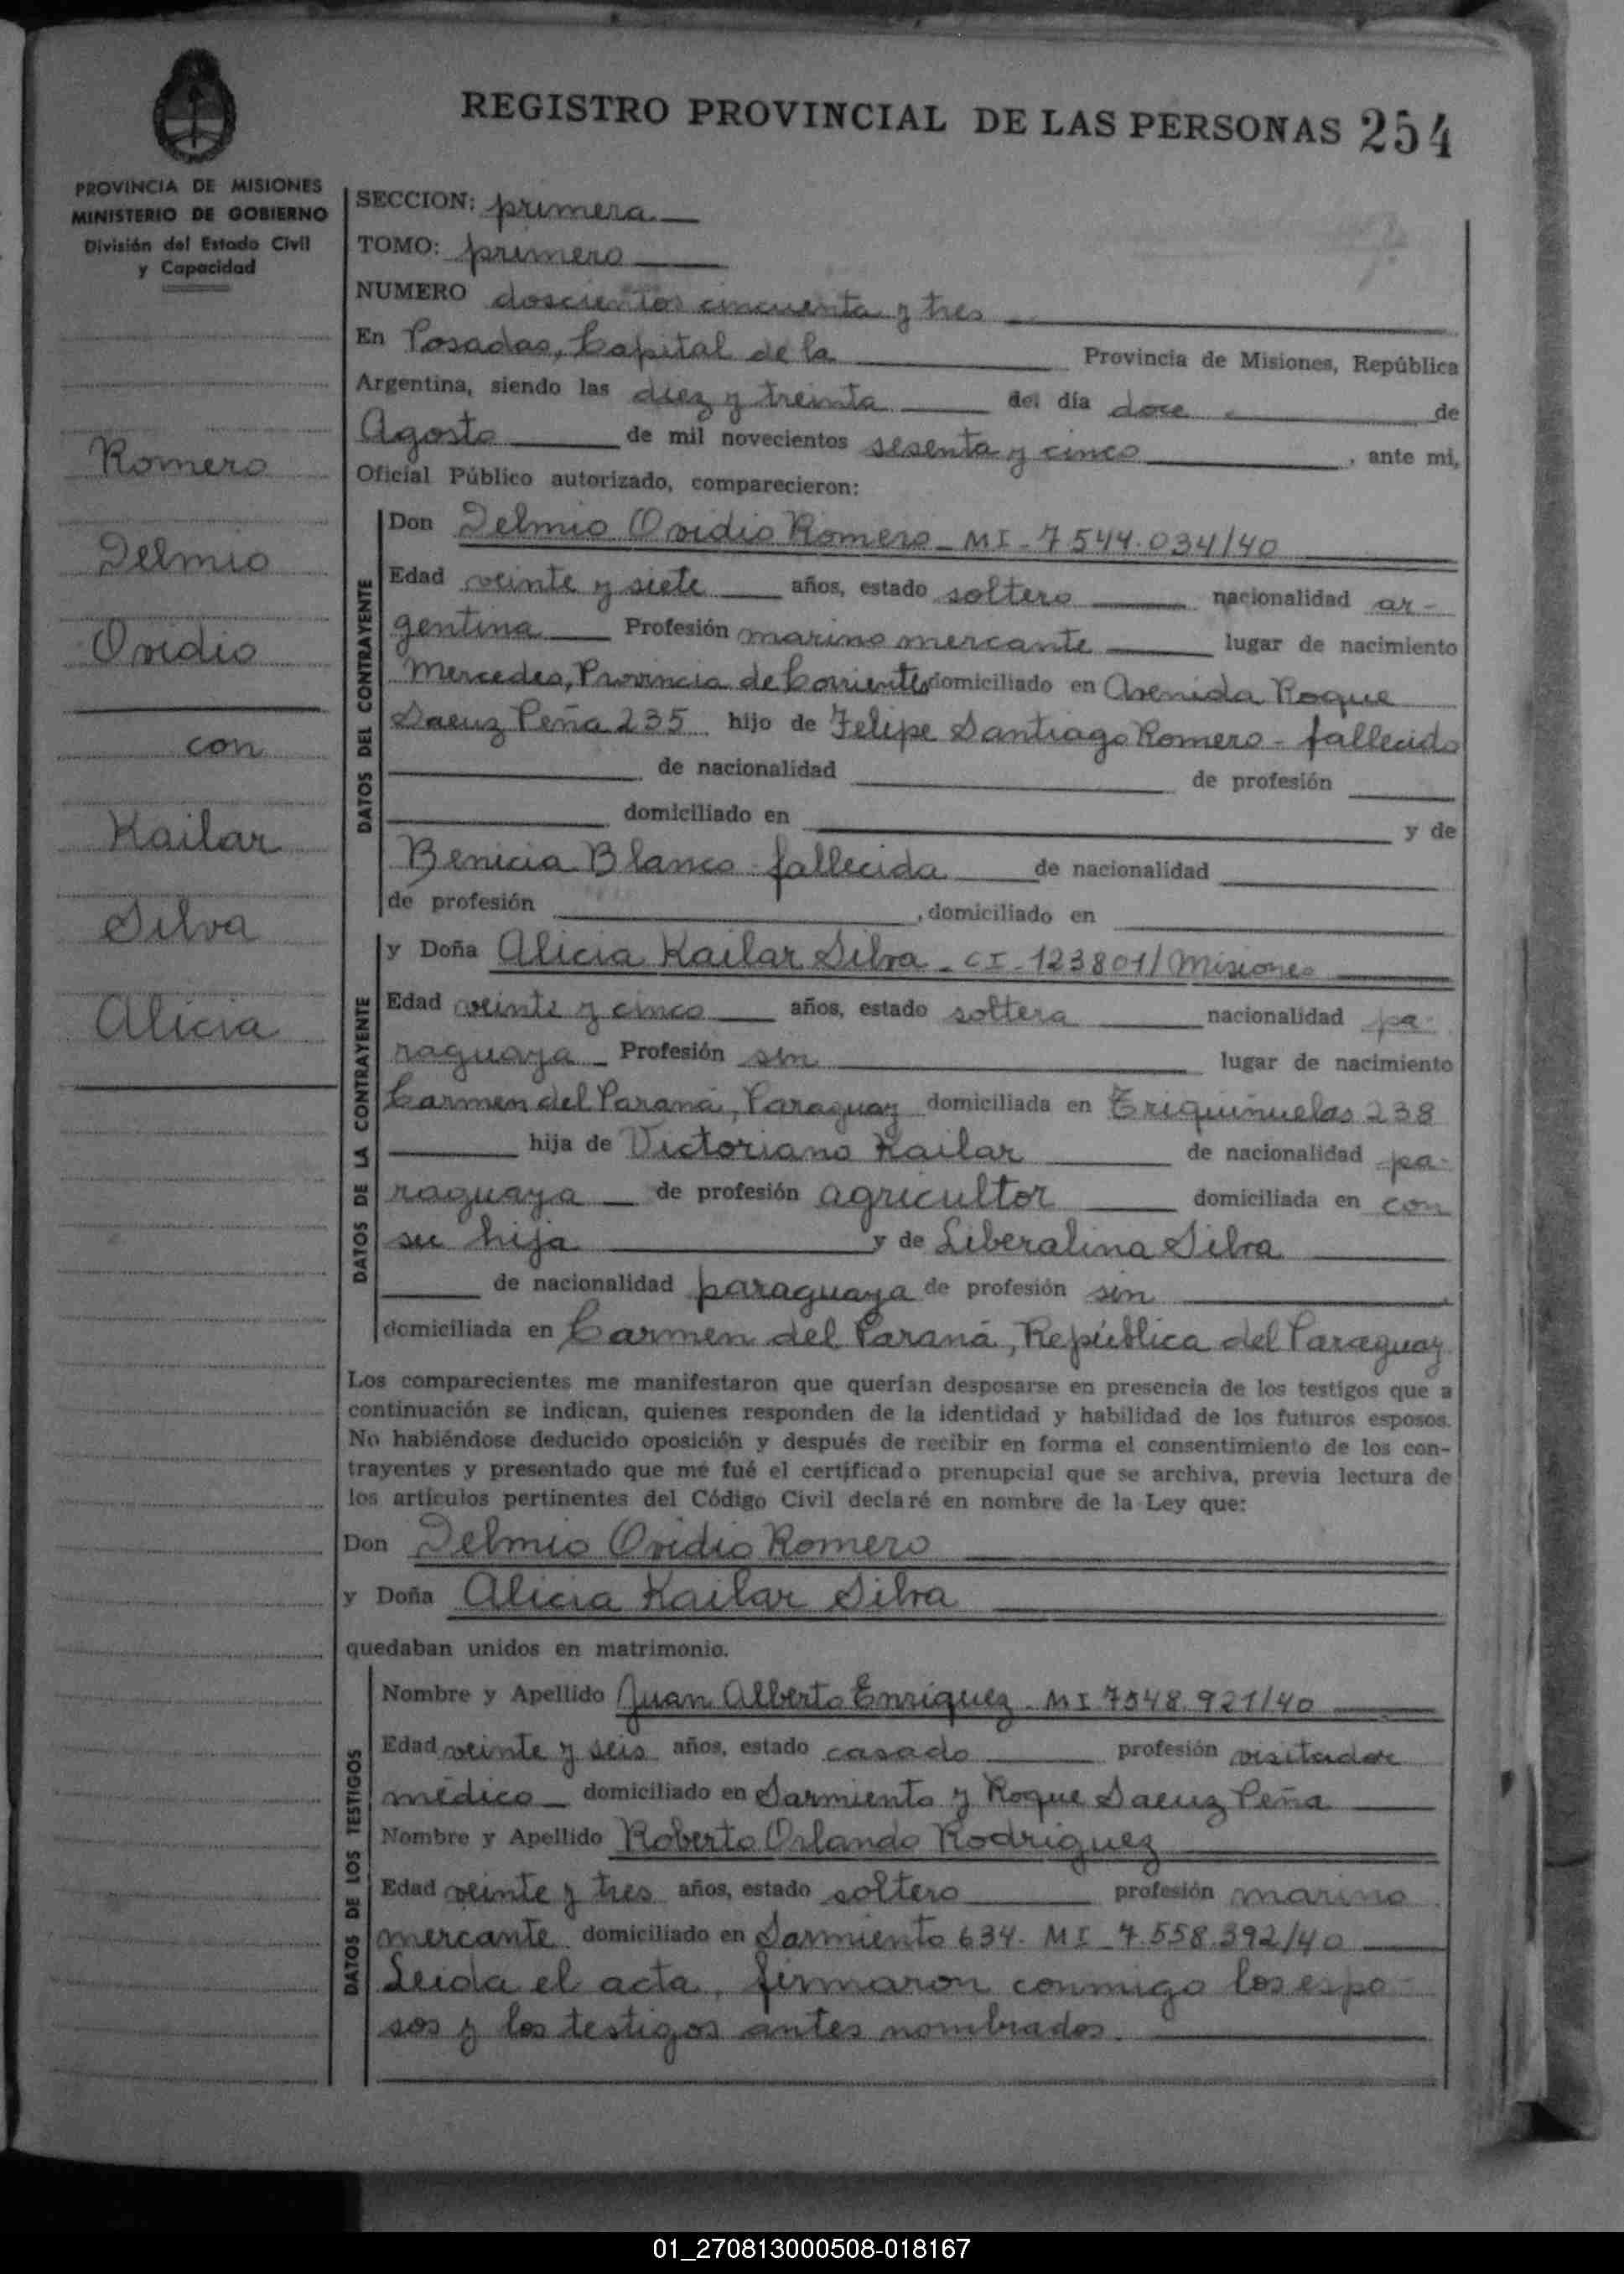 REGISTRO PROVINCIAL DE LAS PERSONAS 254
PROVINCIA DE MISIONES
MINISTERIO DE GOBIERNO
División del Estado Civil
y Capacidad
Romero
Delmio
Ovidio
con
Kailar
Silva
Alicia
SECCION: primera
TOMO: primero
NUMERO doscientos cincuenta y tres
En Posadas, Capital de la Provincia de Misiones, República
Argentina, siendo las diez y treinta del día doce de
Agosto de mil novecientos sesenta y cinco, ante mi,
Oficial Público autorizado, comparecieron:
DATOS DEL CONTRAYENTE
Don Delmio Ovidio Romero - MI - 7544.034/40
Edad veinte y siete años, estado soltero nacionalidad ar-
gentina Profesión marino mercante lugar de nacimiento
Mercedes, Provincia de Corrientes domiciliado en Avenida Roque
Saenz Peña 235 hijo de Felipe Santiago Romero - fallecido
de nacionalidad de profesión
domiciliado en y de
Benicia Blanco - fallecida de nacionalidad
de profesión , domiciliado en
DATOS DE LA CONTRAYENTE
y Doña Alicia Kailar Silva - CI - 123801/Misiones
Edad veinte y cinco años, estado soltera nacionalidad pa-
raguaya Profesión sin lugar de nacimiento
Carmen del Paraná, Paraguay domiciliada en Eriquiñuelas 238
hija de Victoriano Kailar de nacionalidad pa-
raguaya de profesión agricultor domiciliada en con
su hija y de Liberalina Silva
de nacionalidad paraguaya de profesión sin
domiciliada en Carmen del Paraná, República del Paraguay
Los comparecientes me manifestaron que querían desposarse en presencia de los testigos que a
continuación se indican, quienes responden de la identidad y habilidad de los futuros esposos.
No habiéndose deducido oposición y después de recibir en forma el consentimiento de los con-
trayentes y presentado que me fué el certificado prenupcial que se archiva, previa lectura de
los artículos pertinentes del Código Civil declaré en nombre de la Ley que:
Don Delmio Ovidio Romero
y Doña Alicia Kailar Silva
quedaban unidos en matrimonio.
DATOS DE LOS TESTIGOS
Nombre y Apellido Juan Alberto Enriquez - MI 7548.921/40
Edad veinte y seis años, estado casado profesión visitador
médico domiciliado en Sarmiento y Roque Saenz Peña
Nombre y Apellido Roberto Orlando Rodriguez
Edad veinte y tres años, estado soltero profesión marino
mercante domiciliado en Sarmiento 634. MI - 7.558.392/40
Leida el acta, firmaron conmigo los espo-
sos y los testigos antes nombrados.
01_270813000508-018167